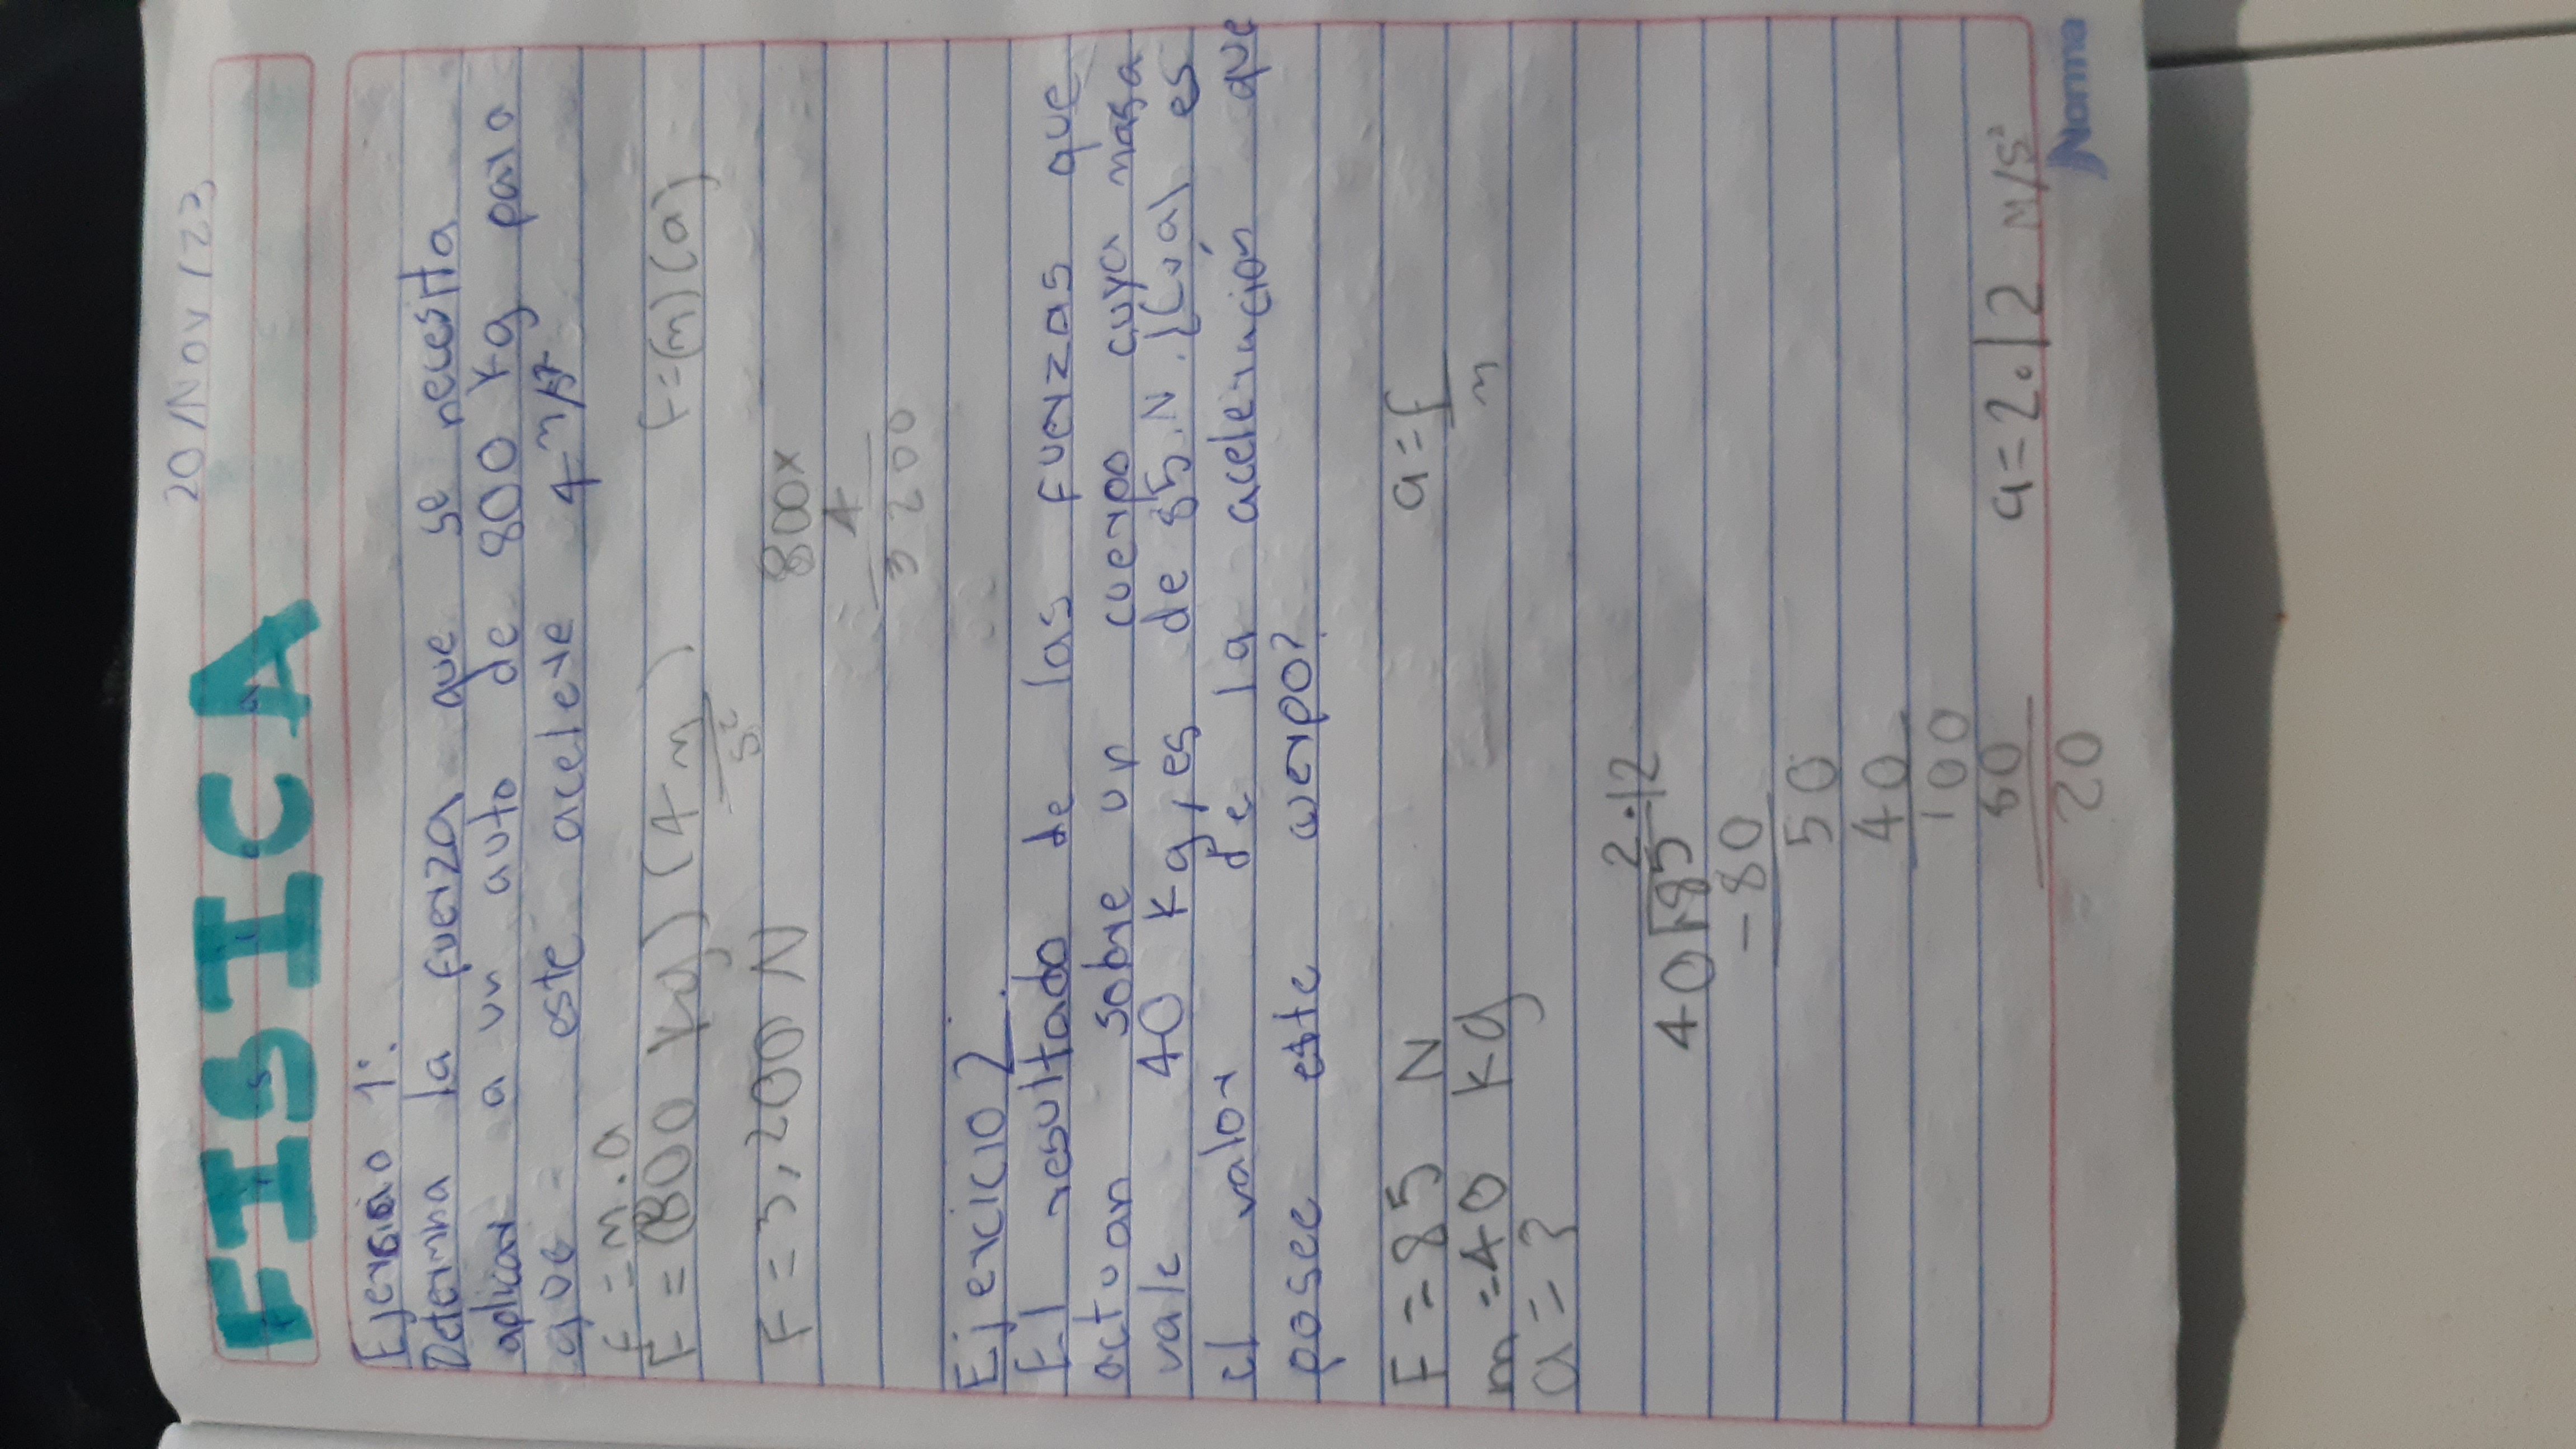 20/Nov/23
FISICA
Ejersisio 1:
Determina la fuerza que se necesita
aplicar a un auto de 800 kg para
que este acelere 4 m/s²
F=m.a
F=(800 kg)(4 m/s²) F=(m)(a)
F=3,200 N 800x
4
3200
Ejercicio 2.
El resultado de las fuerzas que
actuan sobre un cuerpo cuya masa
vale 40 kg, es de 85 N. ¿Cual es
el valor de la aceleración que
posee este cuerpo?
F=85 N a=f/m
m=40 kg
a=?
2.12
40 85
-80
50
40
100
80
20
a=2.12 m/s²
Norma